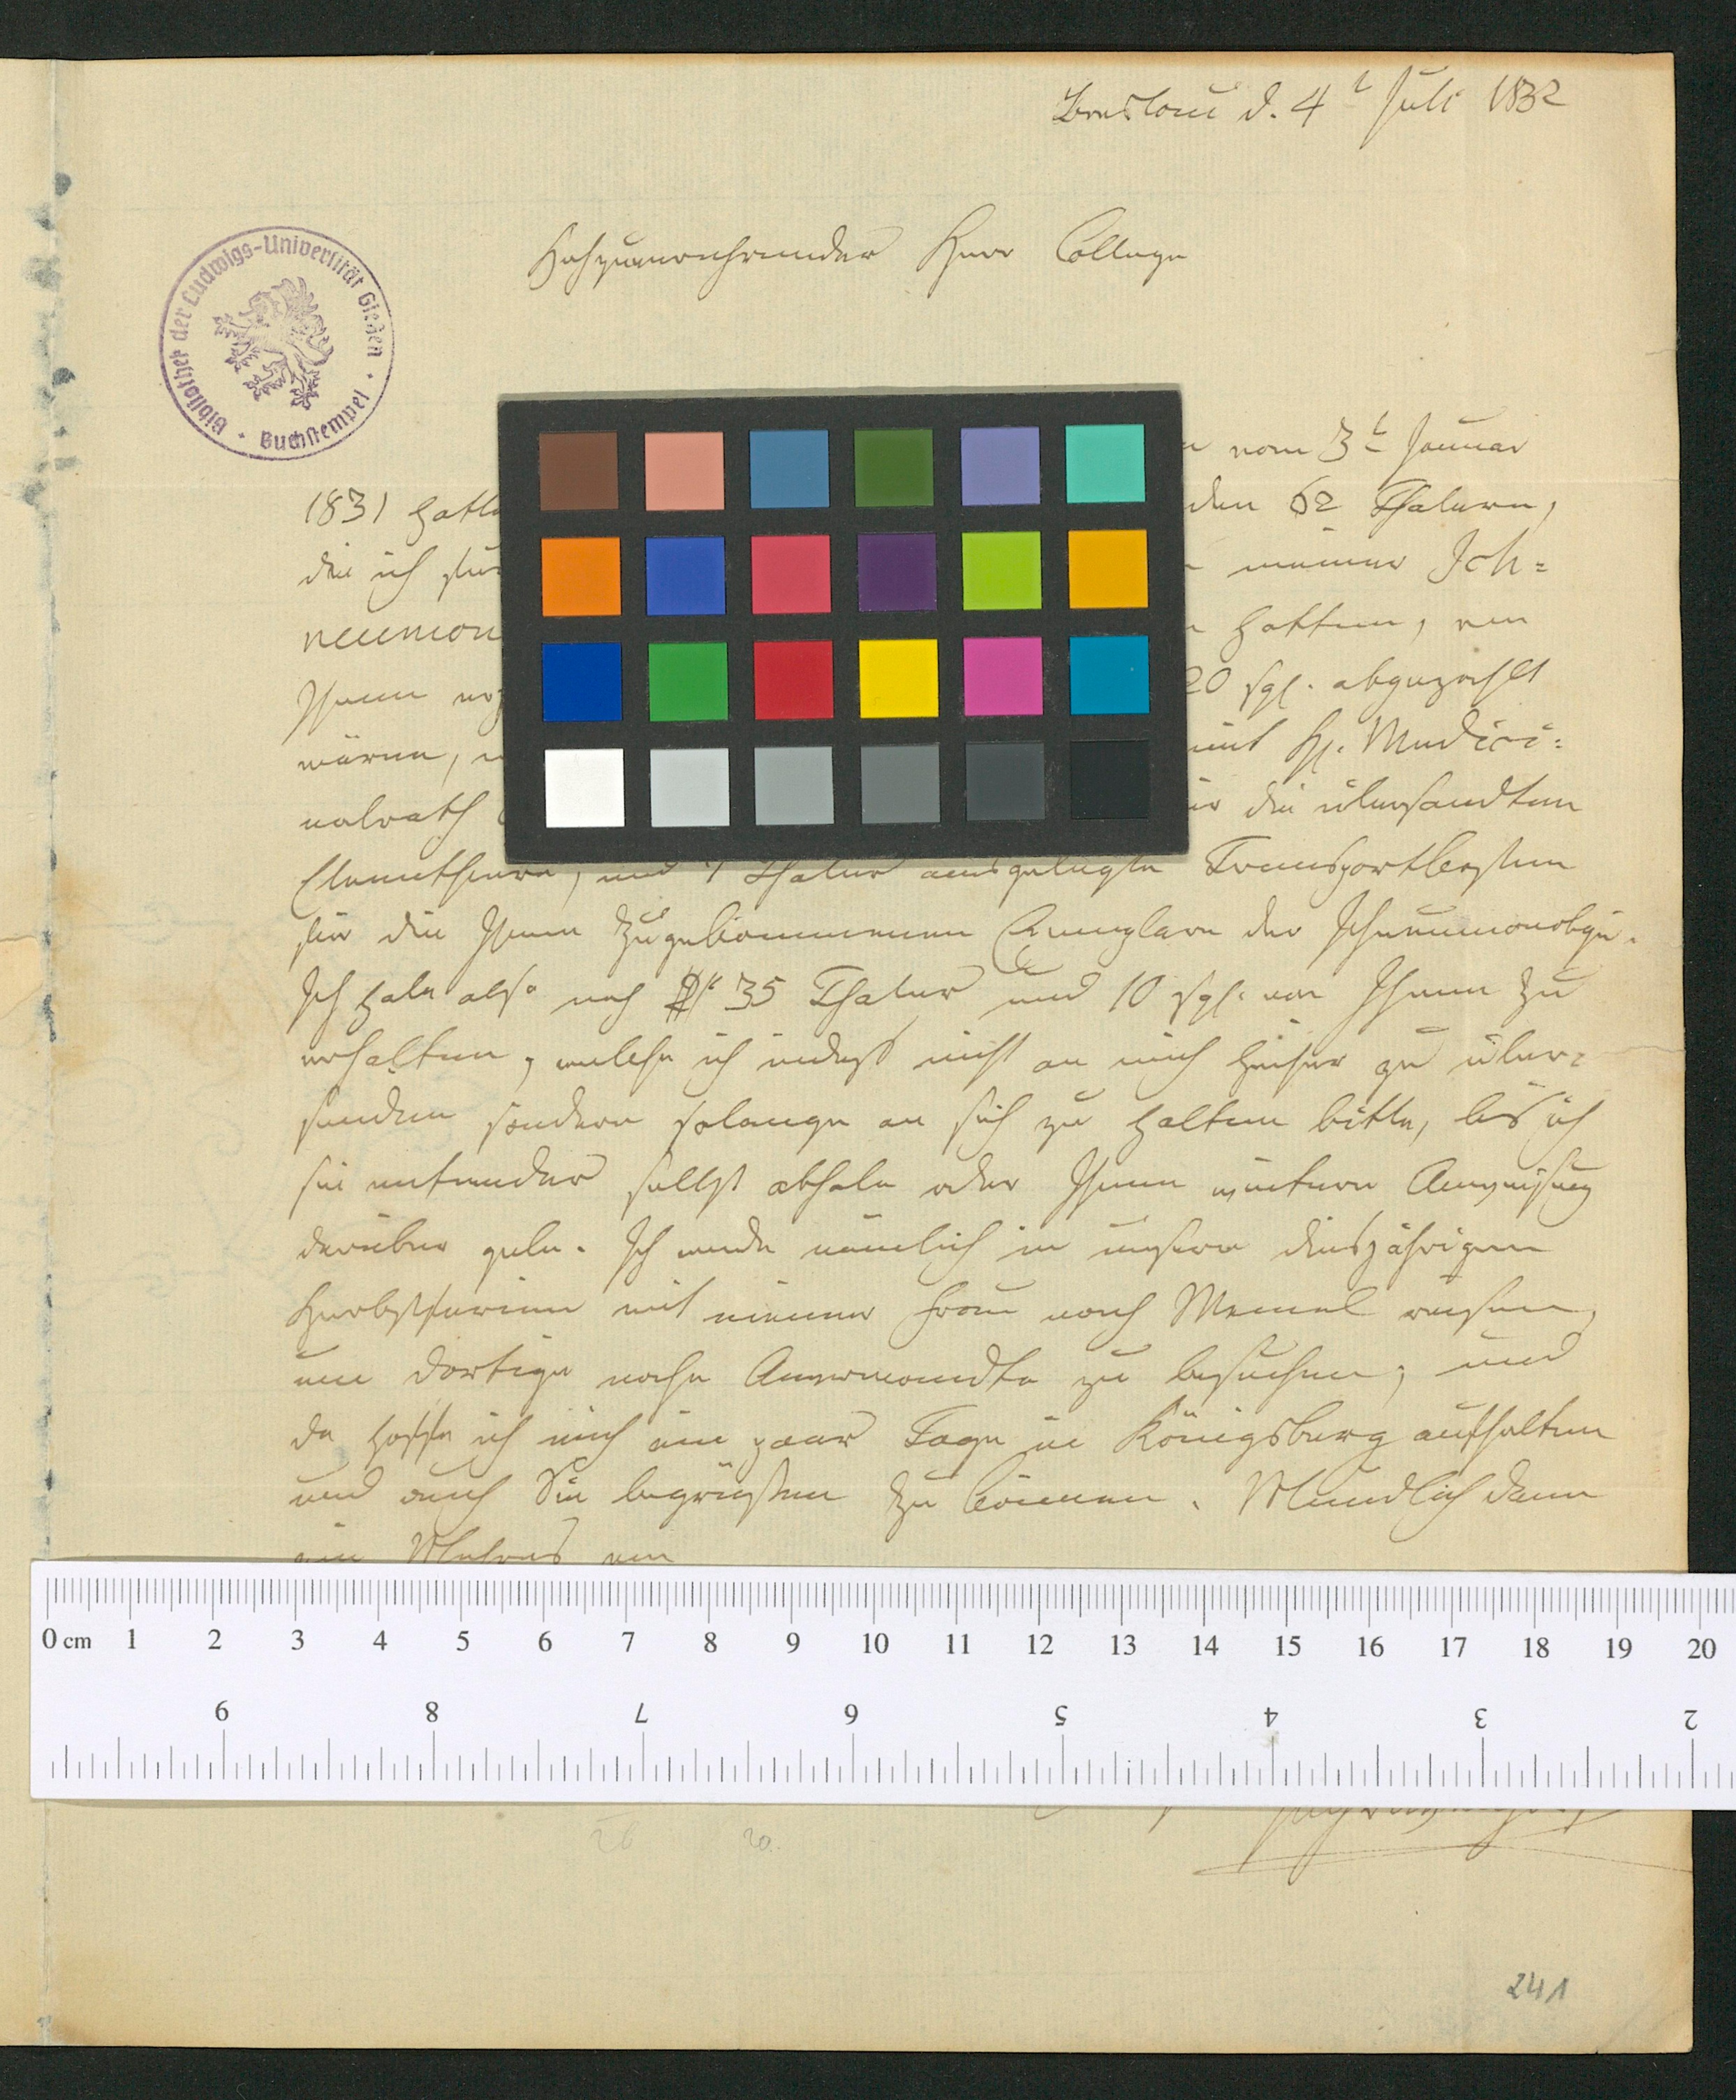 Breslau d. 4t Juli 1832
Hochzuverehrender Herr College
Bibliothek der Ludwigs-Universität Gießen · Buchstempel ·
vom 3t Januar
1831 hatte den 62 Thalern,
die ich für meiner Ich=
neumon hatten, an
Ihnen 20 sgl. abgezahlt
wären, mit H. Medici=
nalrath die übersandten
und 1 Thaler ausgelegte Transportkosten
für die Ihnen zugekommenen Exemplare der Ichneumonologie.
Ich habe also noch 35 Thaler und 10 sgl. von Ihnen zu
erhalten, welche ich indeß nicht an mich hieher zu über=
senden sondern solange an sich zu halten bitte, bis ich
sie entweder selbst abhole oder Ihnen weitere Anweisung
darüber gebe. Ich werde nämlich in unsern diesjährigen
Herbstferien mit meiner Frau nach Memel reisen,
um dortige nahe Anverwandte zu besuchen, und
da hoffe ich mich ein paar Tage in Königsberg aufhalten
und auch Sie begrüßen zu können. Mündlich dann
ein Mehres von
0 cm 1 2 3 4 5 6 7 8 9 10 11 12 13 14 15 16 17 18 19 20
9 8 7 6 5 4 3 2
26 20.
241